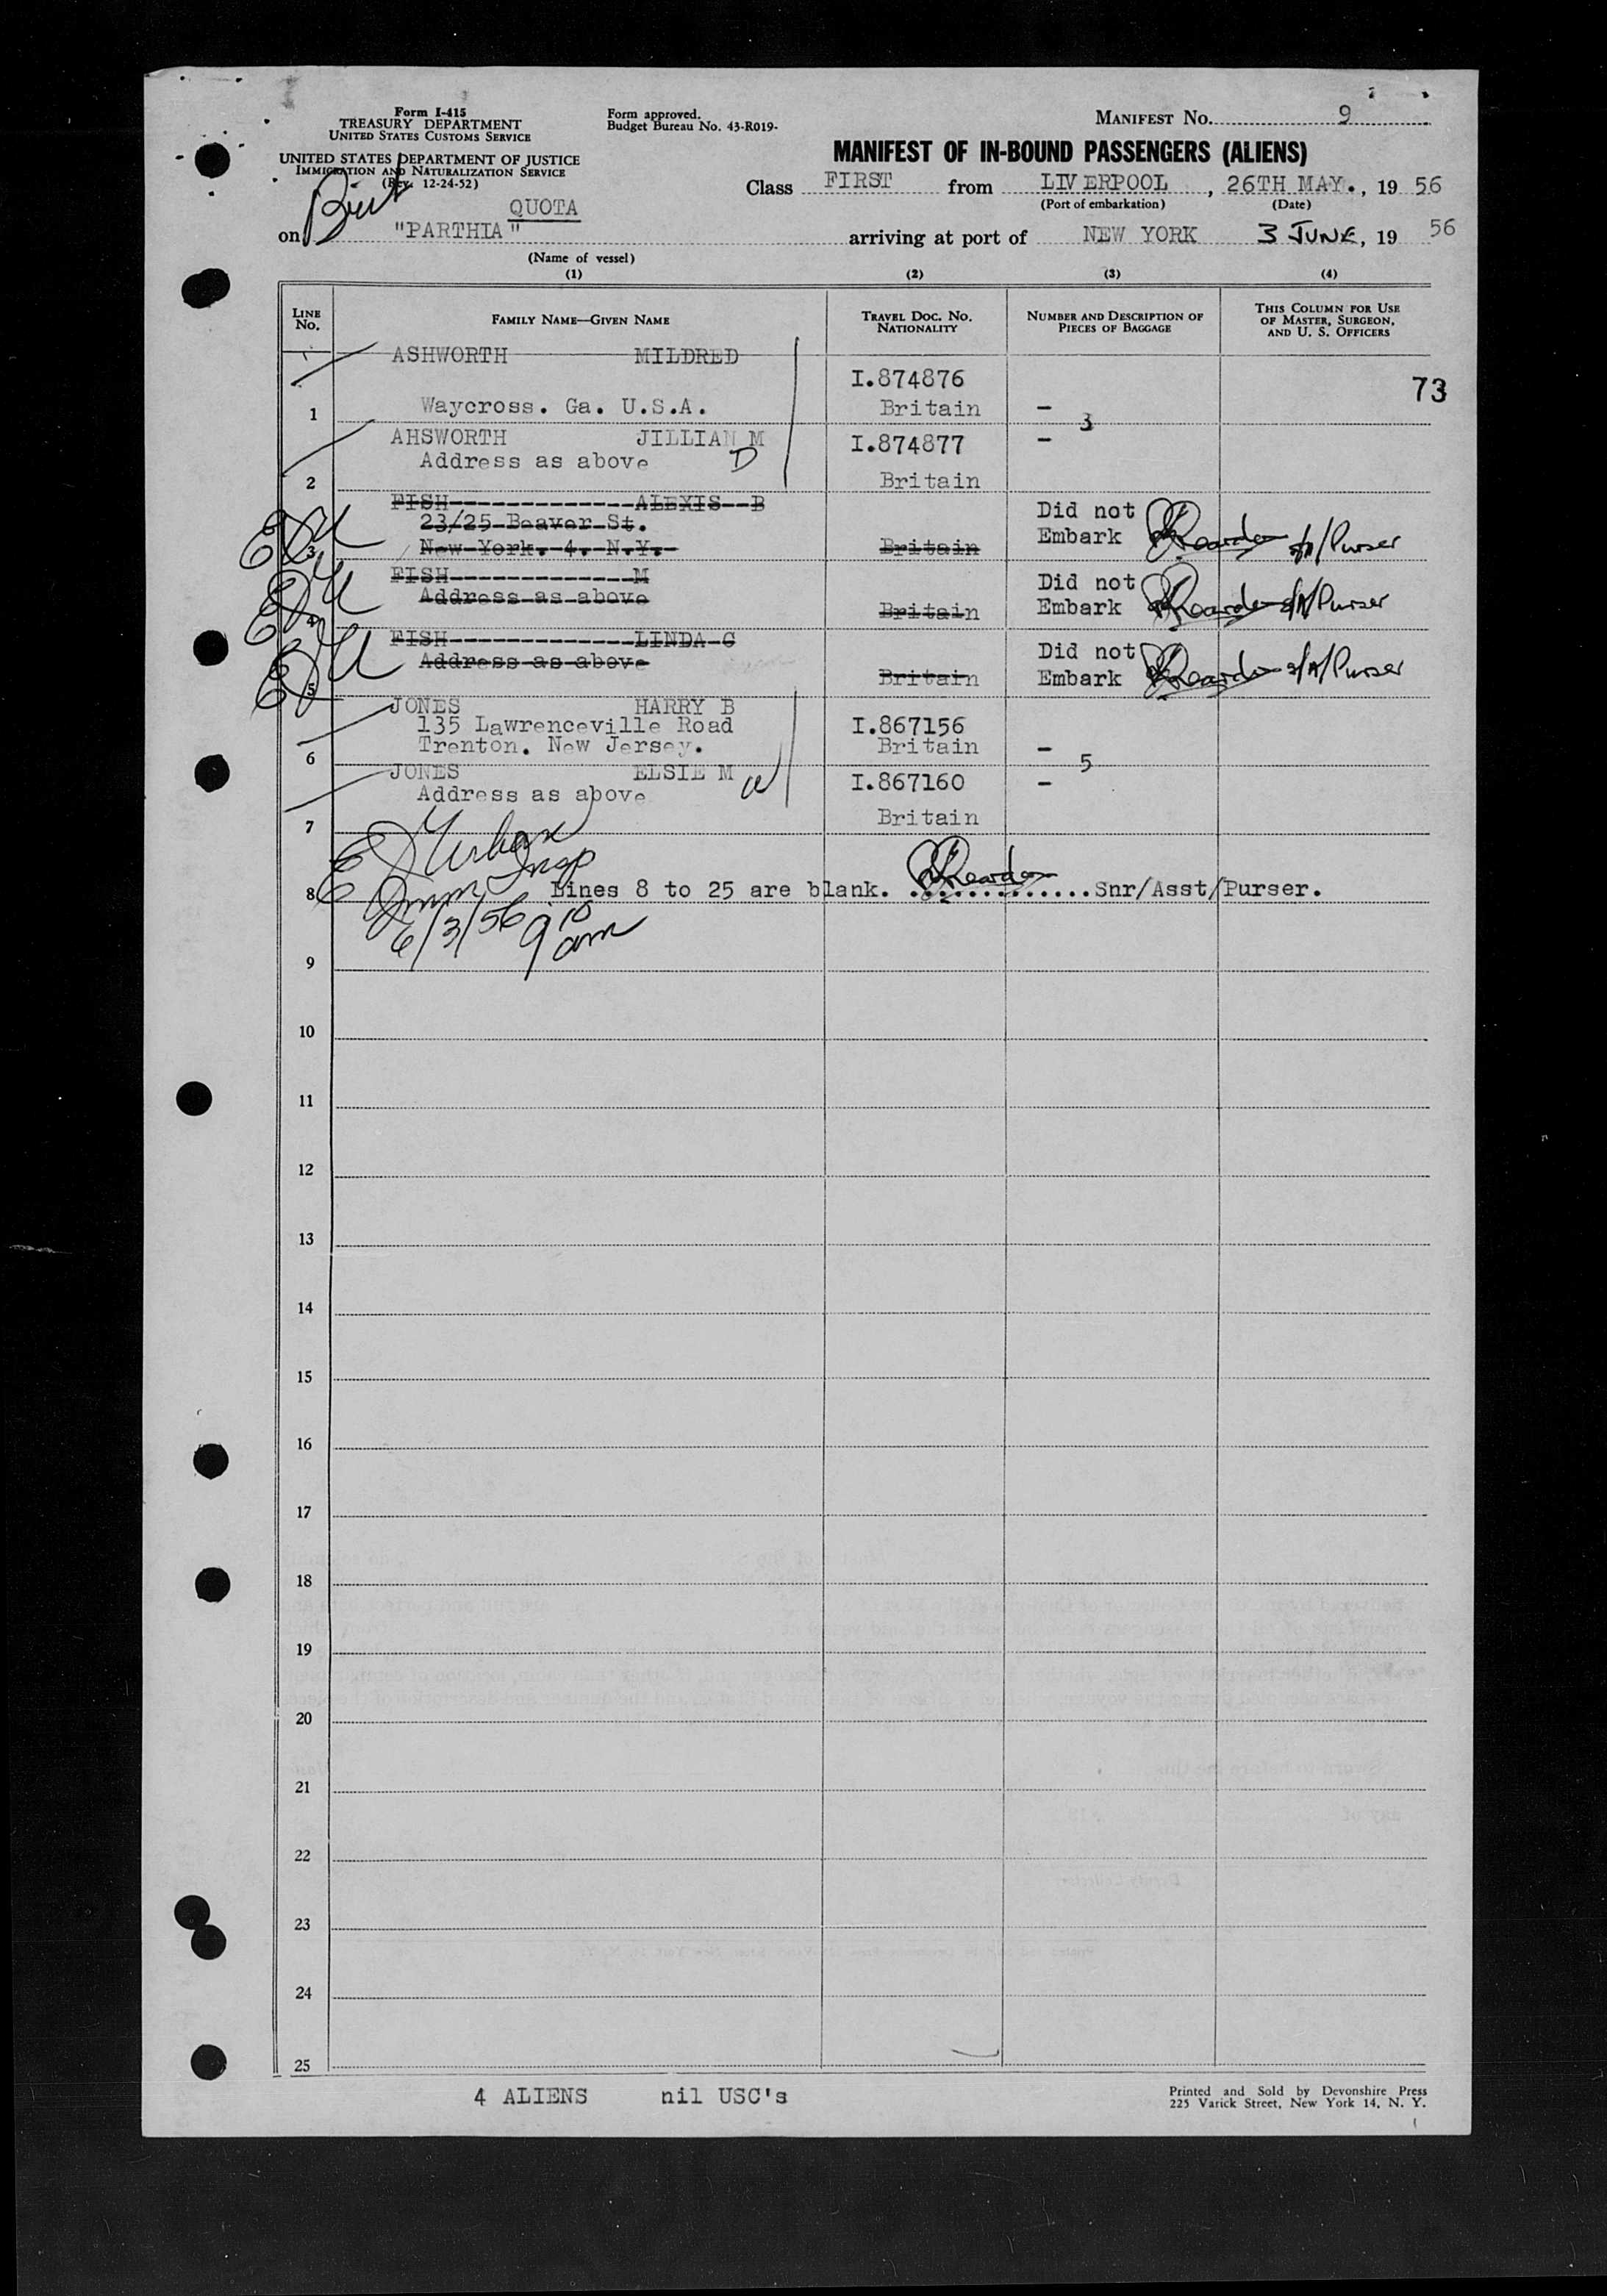 Form I-415
TREASURY DEPARTMENT
UNITED STATES CUSTOMS SERVICE
UNITED STATES DEPARTMENT OF JUSTICE
IMMIGRATION AND NATURALIZATION SERVICE
(Rev. 12-24-52)
Form approved.
Budget Bureau No. 43-R019-
MANIFEST No. 9
MANIFEST OF IN-BOUND PASSENGERS (ALIENS)
Class FIRST from LIVERPOOL, 26TH MAY., 19 56
(Port of embarkation) (Date)
Brit
QUOTA
on "PARTHIA" arriving at port of NEW YORK 3 JUNE, 19 56
(Name of vessel)
(1) (2) (3) (4)
LINE No. FAMILY NAME—GIVEN NAME TRAVEL DOC. No. NATIONALITY NUMBER AND DESCRIPTION OF PIECES OF BAGGAGE THIS COLUMN FOR USE OF MASTER, SURGEON, AND U. S. OFFICERS
ASHWORTH MILDRED
I.874876
73
1 Waycross. Ga. U.S.A. Britain -
3
AHSWORTH JILLIAN M I.874877 -
Address as above D
2 Britain
FISH-------------ALEXIS--B Did not
23/25-Beaver-St. Embark Reardon S/A/Purser
3 New-York.-4.-N.Y.- Britain
FISH-------------M Did not
Address-as-above Embark Reardon S/A/Purser
4 Britain
FISH-------------LINDA-G Did not
Address-as-above Embark Reardon S/A/Purser
5 Britain
JONES HARRY B
135 Lawrenceville Road I.867156
6 Trenton. New Jersey. Britain -
5
JONES ELSIE M W I.867160 -
Address as above
7 Britain
E J Urban
Imm Insp
8 Lines 8 to 25 are blank. Reardon Snr/Asst/Purser.
6/3/56 9 10 am
9
10
11
12
13
14
15
16
17
18
19
20
21
22
23
24
25
4 ALIENS nil USC's
Printed and Sold by Devonshire Press
225 Varick Street, New York 14, N. Y.